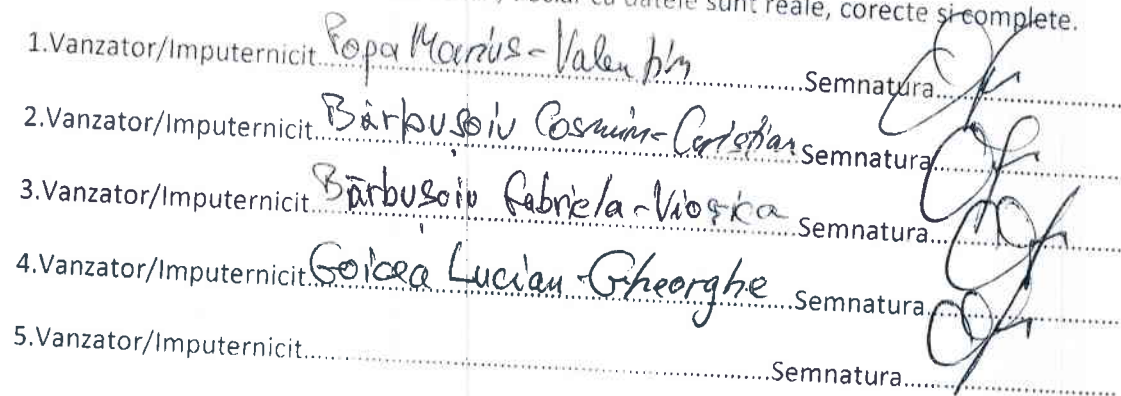 datele sunt reale, corecte și complete.
1.Vanzator/Imputernicit Popa Marius-Valentin Semnatura
2.Vanzator/Imputernicit Bărbușoiu Cosmin-Cristian Semnatura
3.Vanzator/Imputernicit Bărbușoiu Gabriela-Viorica Semnatura
4.Vanzator/Imputernicit Goicea Lucian-Gheorghe Semnatura
5.Vanzator/Imputernicit Semnatura